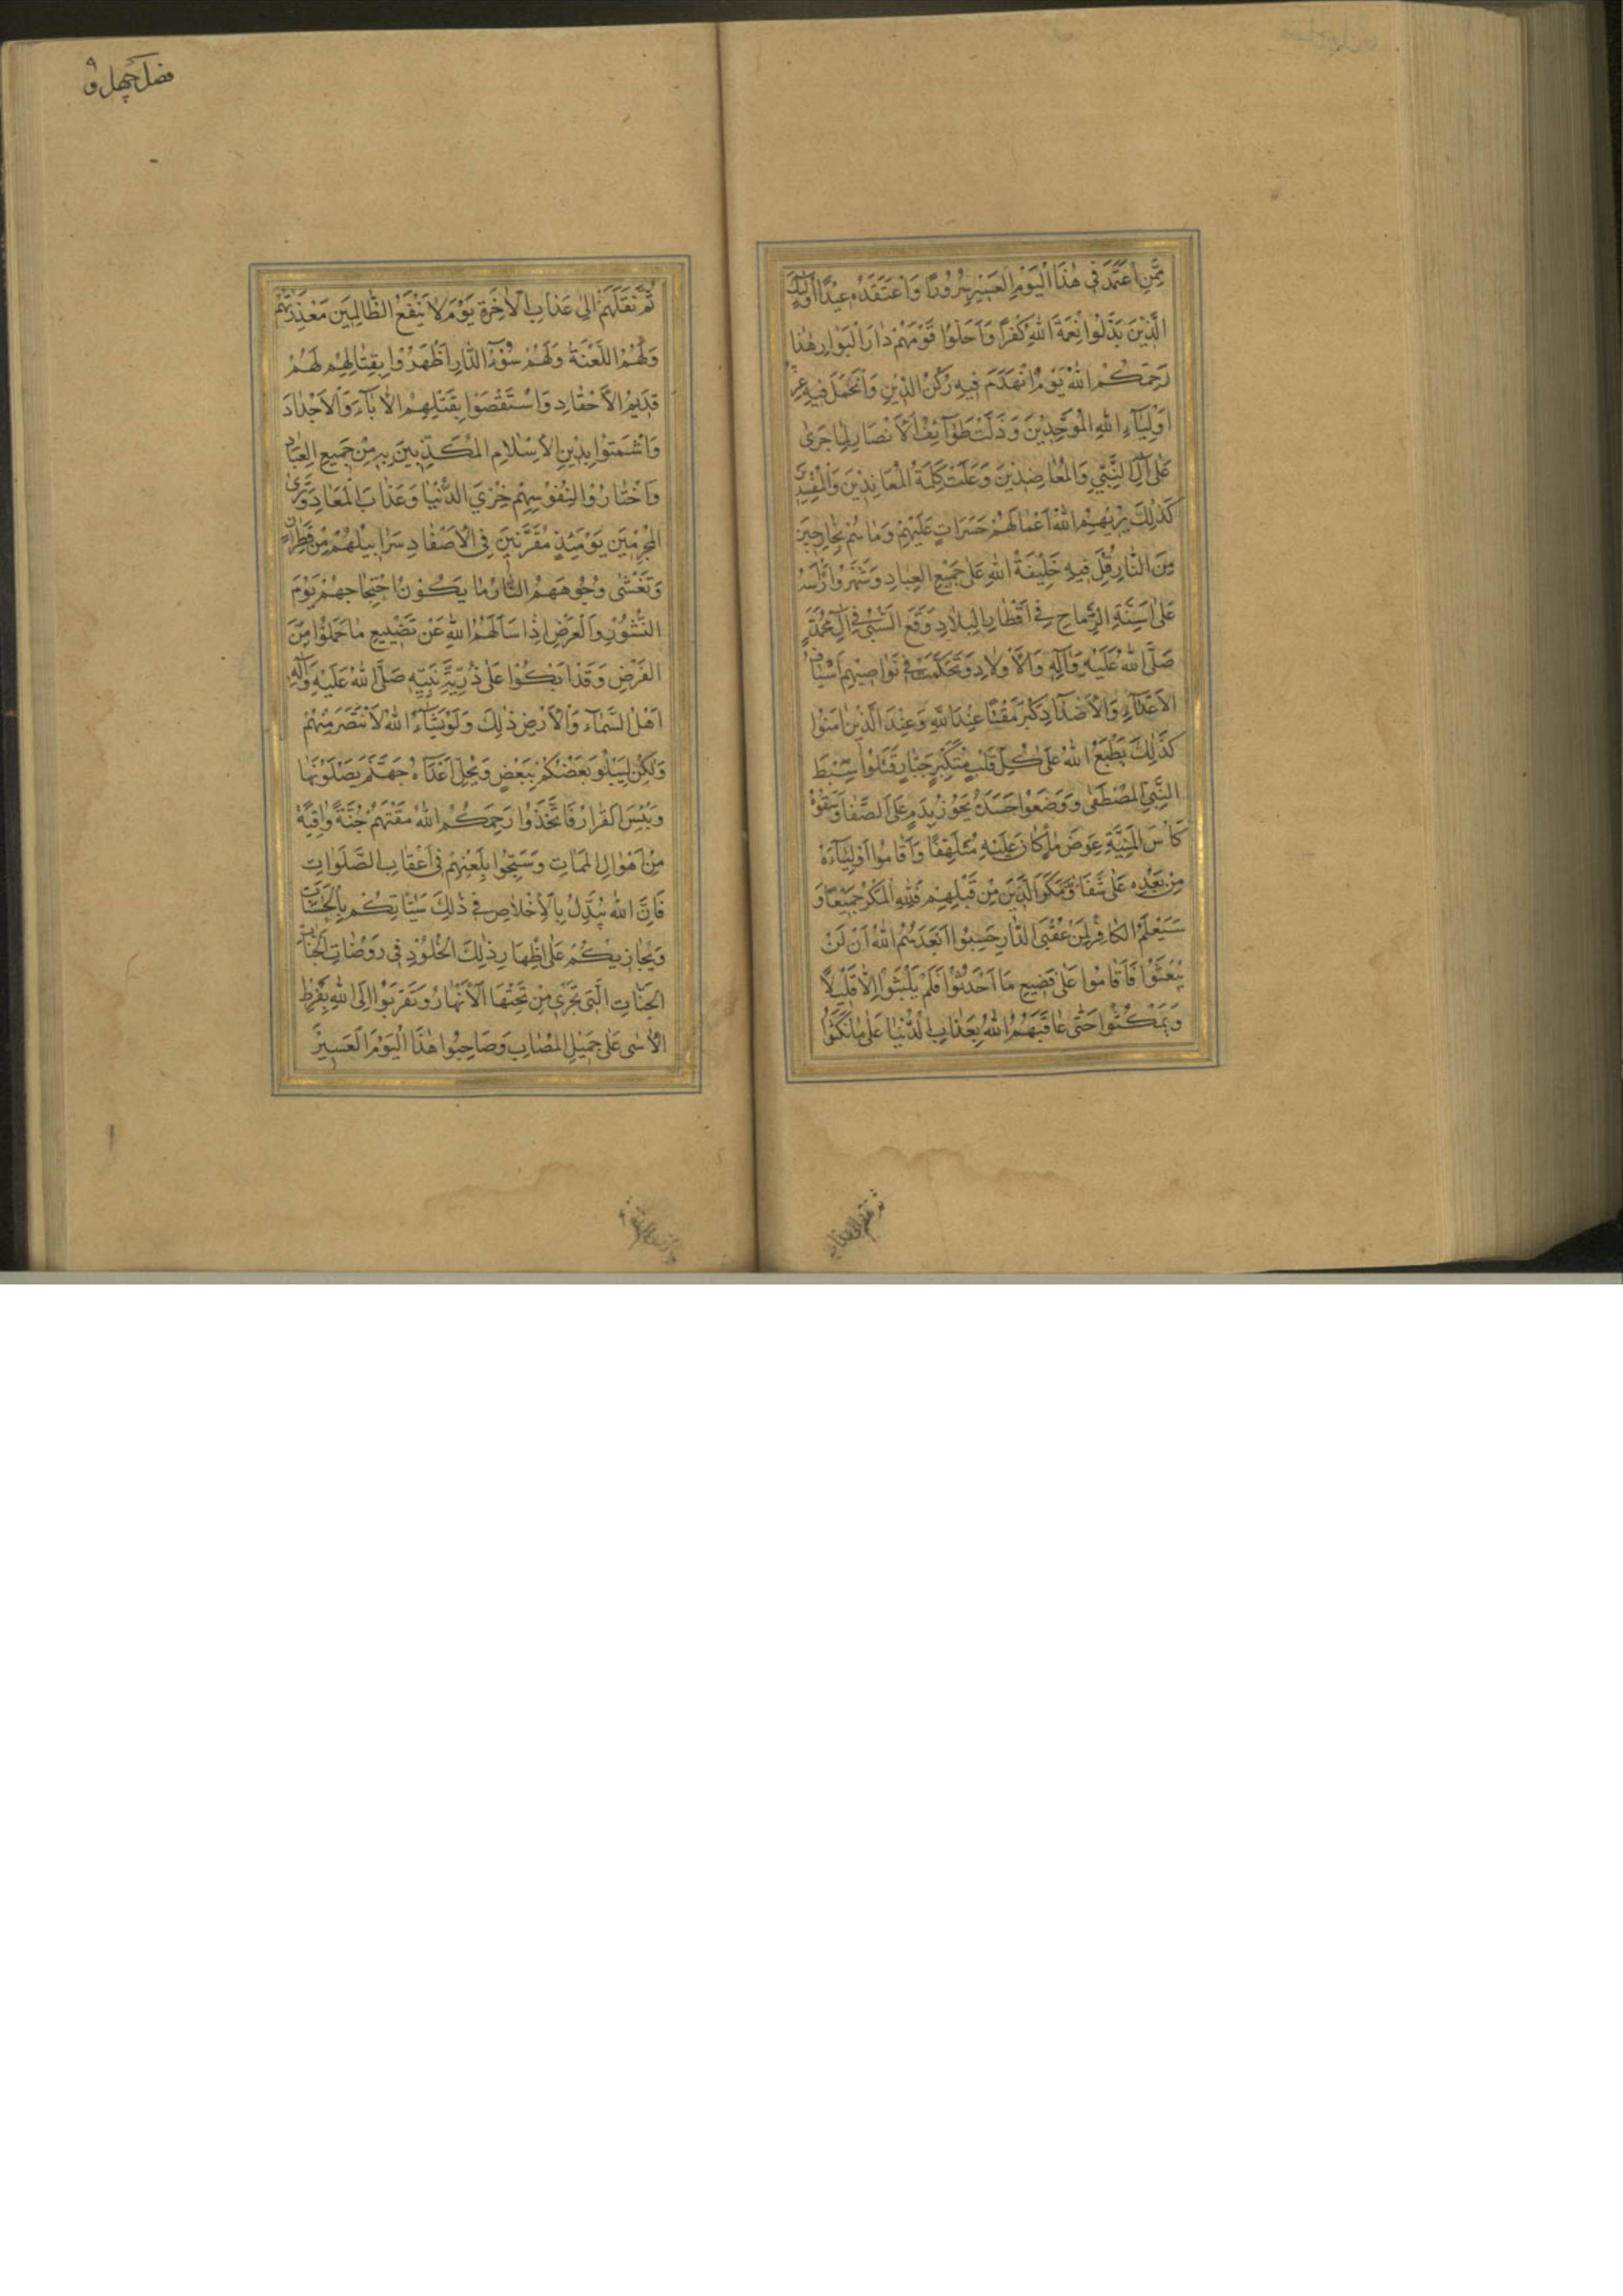 مِمَّنِ اعْتَمَدَ فِي هٰذَا الْيَوْمِ الْعَسِيرِ سُرُورًا وَاعْتَقَدَهُ عِيدًا اُولٰئِكَ
الَّذِينَ بَدَّلُوا نِعْمَةَ اللهِ كُفْرًا وَاَحَلُّوا قَوْمَهُمْ دَارَ الْبَوَارِ هٰذَا
رَحِمَكُمُ اللهُ يَوْمٌ انْهَدَمَ فِيهِ رُكْنُ الدِّينِ وَ فِيهِ
اَوْلِيَآءِ اللهِ الْمُوَحِّدِينَ وَذَلَّتْ طَوَآئِفُ الْاَنْصَارِ لِمَا جَرٰى
عَلٰى آلِ النَّبِيِّ وَالْمُعَارِضِينَ وَعَلَتْ كَلِمَةُ الْمُعَانِدِينَ
كَذٰلِكَ يُرِيهِمُ اللهُ اَعْمَالَهُمْ حَسَرَاتٍ عَلَيْهِمْ وَمَا هُمْ بِخَارِجِينَ
مِنَ النَّارِ قُتِلَ فِيهِ خَلِيفَةُ اللهِ عَلٰى جَمِيعِ الْعِبَادِ وَشَهَرُوا رَأْسَهُ
عَلٰى اَسِنَّةِ الرِّمَاحِ فِي اَقْطَارِ الْبِلَادِ وَوَقَعَ السَّبْيُ فِي آلِ مُحَمَّدٍ
صَلَّى اللهُ عَلَيْهِ وَآلِهِ وَالْاَوْلَادِ وَتَحَكَّمَتْ فِي نَوَاصِيهِمْ اَسْيَافُ
الْاَعْدَآءِ وَالْاَضْدَادِ كَبُرَ مَقْتًا عِنْدَ اللهِ وَعِنْدَ الَّذِينَ آمَنُوا
كَذٰلِكَ يَطْبَعُ اللهُ عَلٰى كُلِّ قَلْبِ مُتَكَبِّرٍ جَبَّارٍ قَتَلُوا سِبْطَ
النَّبِيِّ الْمُصْطَفٰى وَوَضَعُوا جَسَدَهُ عَلَى الصَّفَا وَسَقَوْهُ
كَأْسَ الْمَنِيَّةِ عِوَضَ مَا كَانَ عَلَيْهِ مُتَلَهِّفًا وَاَقَامُوا اَوْلِيَآءَهُ
مِنْ بَعْدِهِ عَلٰى شَفَا وَمَكَرَ الَّذِينَ مِنْ قَبْلِهِمْ فَلِلّٰهِ الْمَكْرُ جَمِيعًا وَ
سَيَعْلَمُ الْكَافِرُ لِمَنْ عُقْبَى الدَّارِ حَسِبُوا اَبْعَدَهُمُ اللهُ اَنْ لَنْ
يُبْعَثُوا فَاَقَامُوا عَلٰى فَضِيعِ مَا اَحْدَثُوا فَلَمْ يَلْبَثُوا اِلَّا قَلِيلًا
وَيَمْكُثُوا حَتّٰى عَاقَبَهُمُ اللهُ بِعَذَابِ الدُّنْيَا عَلٰى مَا نَكَثُوا
ثُمَّ نَقَلَهُمْ
ثُمَّ نَقَلَهُمْ اِلٰى عَذَابِ الْاٰخِرَةِ يَوْمَ لَا يَنْفَعُ الظَّالِمِينَ مَعْذِرَتُهُمْ
وَلَهُمُ اللَّعْنَةُ وَلَهُمْ سُوٓءُ الدَّارِ اَظْهَرُوا بِقِتَالِهِمْ لَهُمْ
قَدِيمَ الْاَحْقَادِ وَاسْتَقْصَوْا بِقَتْلِهِمُ الْاٰبَآءَ وَالْاَجْدَادَ
وَاَشْمَتُوا بِدِينِ الْاِسْلَامِ الْمُكَذِّبِينَ بِهِ مِنْ جَمِيعِ الْعِبَادِ
وَاخْتَارُوا لِنُفُوسِهِمْ خِزْيَ الدُّنْيَا وَعَذَابَ الْمَعَادِ وَتَرَى
الْمُجْرِمِينَ يَوْمَئِذٍ مُقَرَّنِينَ فِي الْاَصْفَادِ سَرَابِيلُهُمْ مِنْ قَطِرَانٍ
وَتَغْشٰى وُجُوهَهُمُ النَّارُ مَا يَكُونُ احْتِجَاجُهُمْ يَوْمَ
النُّشُورِ وَالْعَرْضِ اِذَا سَاَلَهُمُ اللهُ عَنْ تَضْيِيعِ مَا حُمِّلُوا مِنَ
الْفَرْضِ وَقَدْ بَكٰى عَلٰى ذُرِّيَّةِ نَبِيِّهِ صَلَّى اللهُ عَلَيْهِ وَآلِهِ
اَهْلُ السَّمَآءِ وَالْاَرْضِ ذٰلِكَ وَلَوْ يَشَآءُ اللهُ لَانْتَصَرَ مِنْهُمْ
وَلٰكِنْ لِيَبْلُوَ بَعْضَكُمْ بِبَعْضٍ وَيُحِلَّ اَعْدَآءَهُ جَهَنَّمَ يَصْلَوْنَهَا
وَبِئْسَ الْقَرَارُ فَاتَّخِذُوا رَحِمَكُمُ اللهُ مَقْتَهُمْ جُنَّةً وَاقِيَةً
مِنْ اَهْوَالِ الْمَمَاتِ وَسَبِّحُوا بِلَعْنِهِمْ فِي اَعْقَابِ الصَّلَوَاتِ
فَاِنَّ اللهَ يُبَدِّلُ بِالْاِخْلَاصِ فِي ذٰلِكَ سَيِّئَاتِكُمْ بِالْحَسَنَاتِ
وَيُجَازِيكُمْ عَلٰى اِظْهَارِ ذٰلِكَ الْخُلُودَ فِي رَوْضَاتِ
الْجَنَّاتِ الَّتِي تَجْرِي مِنْ تَحْتِهَا الْاَنْهَارُ وَتَقَرَّبُوا اِلَى اللهِ بِفَرْطِ
الْاَسٰى عَلٰى جَمِيلِ الْمُصَابِ وَصَاحِبُوا هٰذَا الْيَوْمَ الْعَسِيرَ